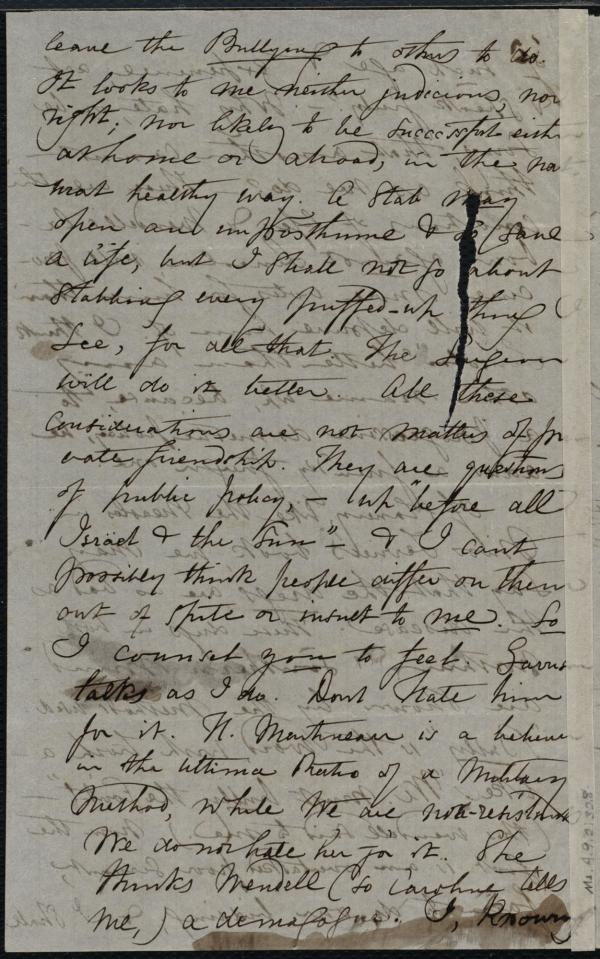 leave the Bullying to others to do.
It looks to me neither judicious, nor
right; nor likely to be successful eith
at home or abroad, in the na
tural healthy way. A Stab may
open an imposthume & so save
a life, but I shall not go about
Stabbing every puffed-up thing I
see, for all that. The Surgeon
will do it better. All these
considerations are not matters of pri
vate friendship. They are questions
of public policy, — up "before all
Israel & the Sun" — & I cant
possibly think people differ on them
out of spite or insult to me. So
I counsel you to feel. Garris
talks as I do. Dont hate him
for it. H. Martineau is a believe
in the Ultima Ratio of a Military
Method, while We are non-resistants
We do not hate her for it. She
thinks Wendell (so Caroline tells
me,) a demagogue. I, knowing
Ms.A.9.2.